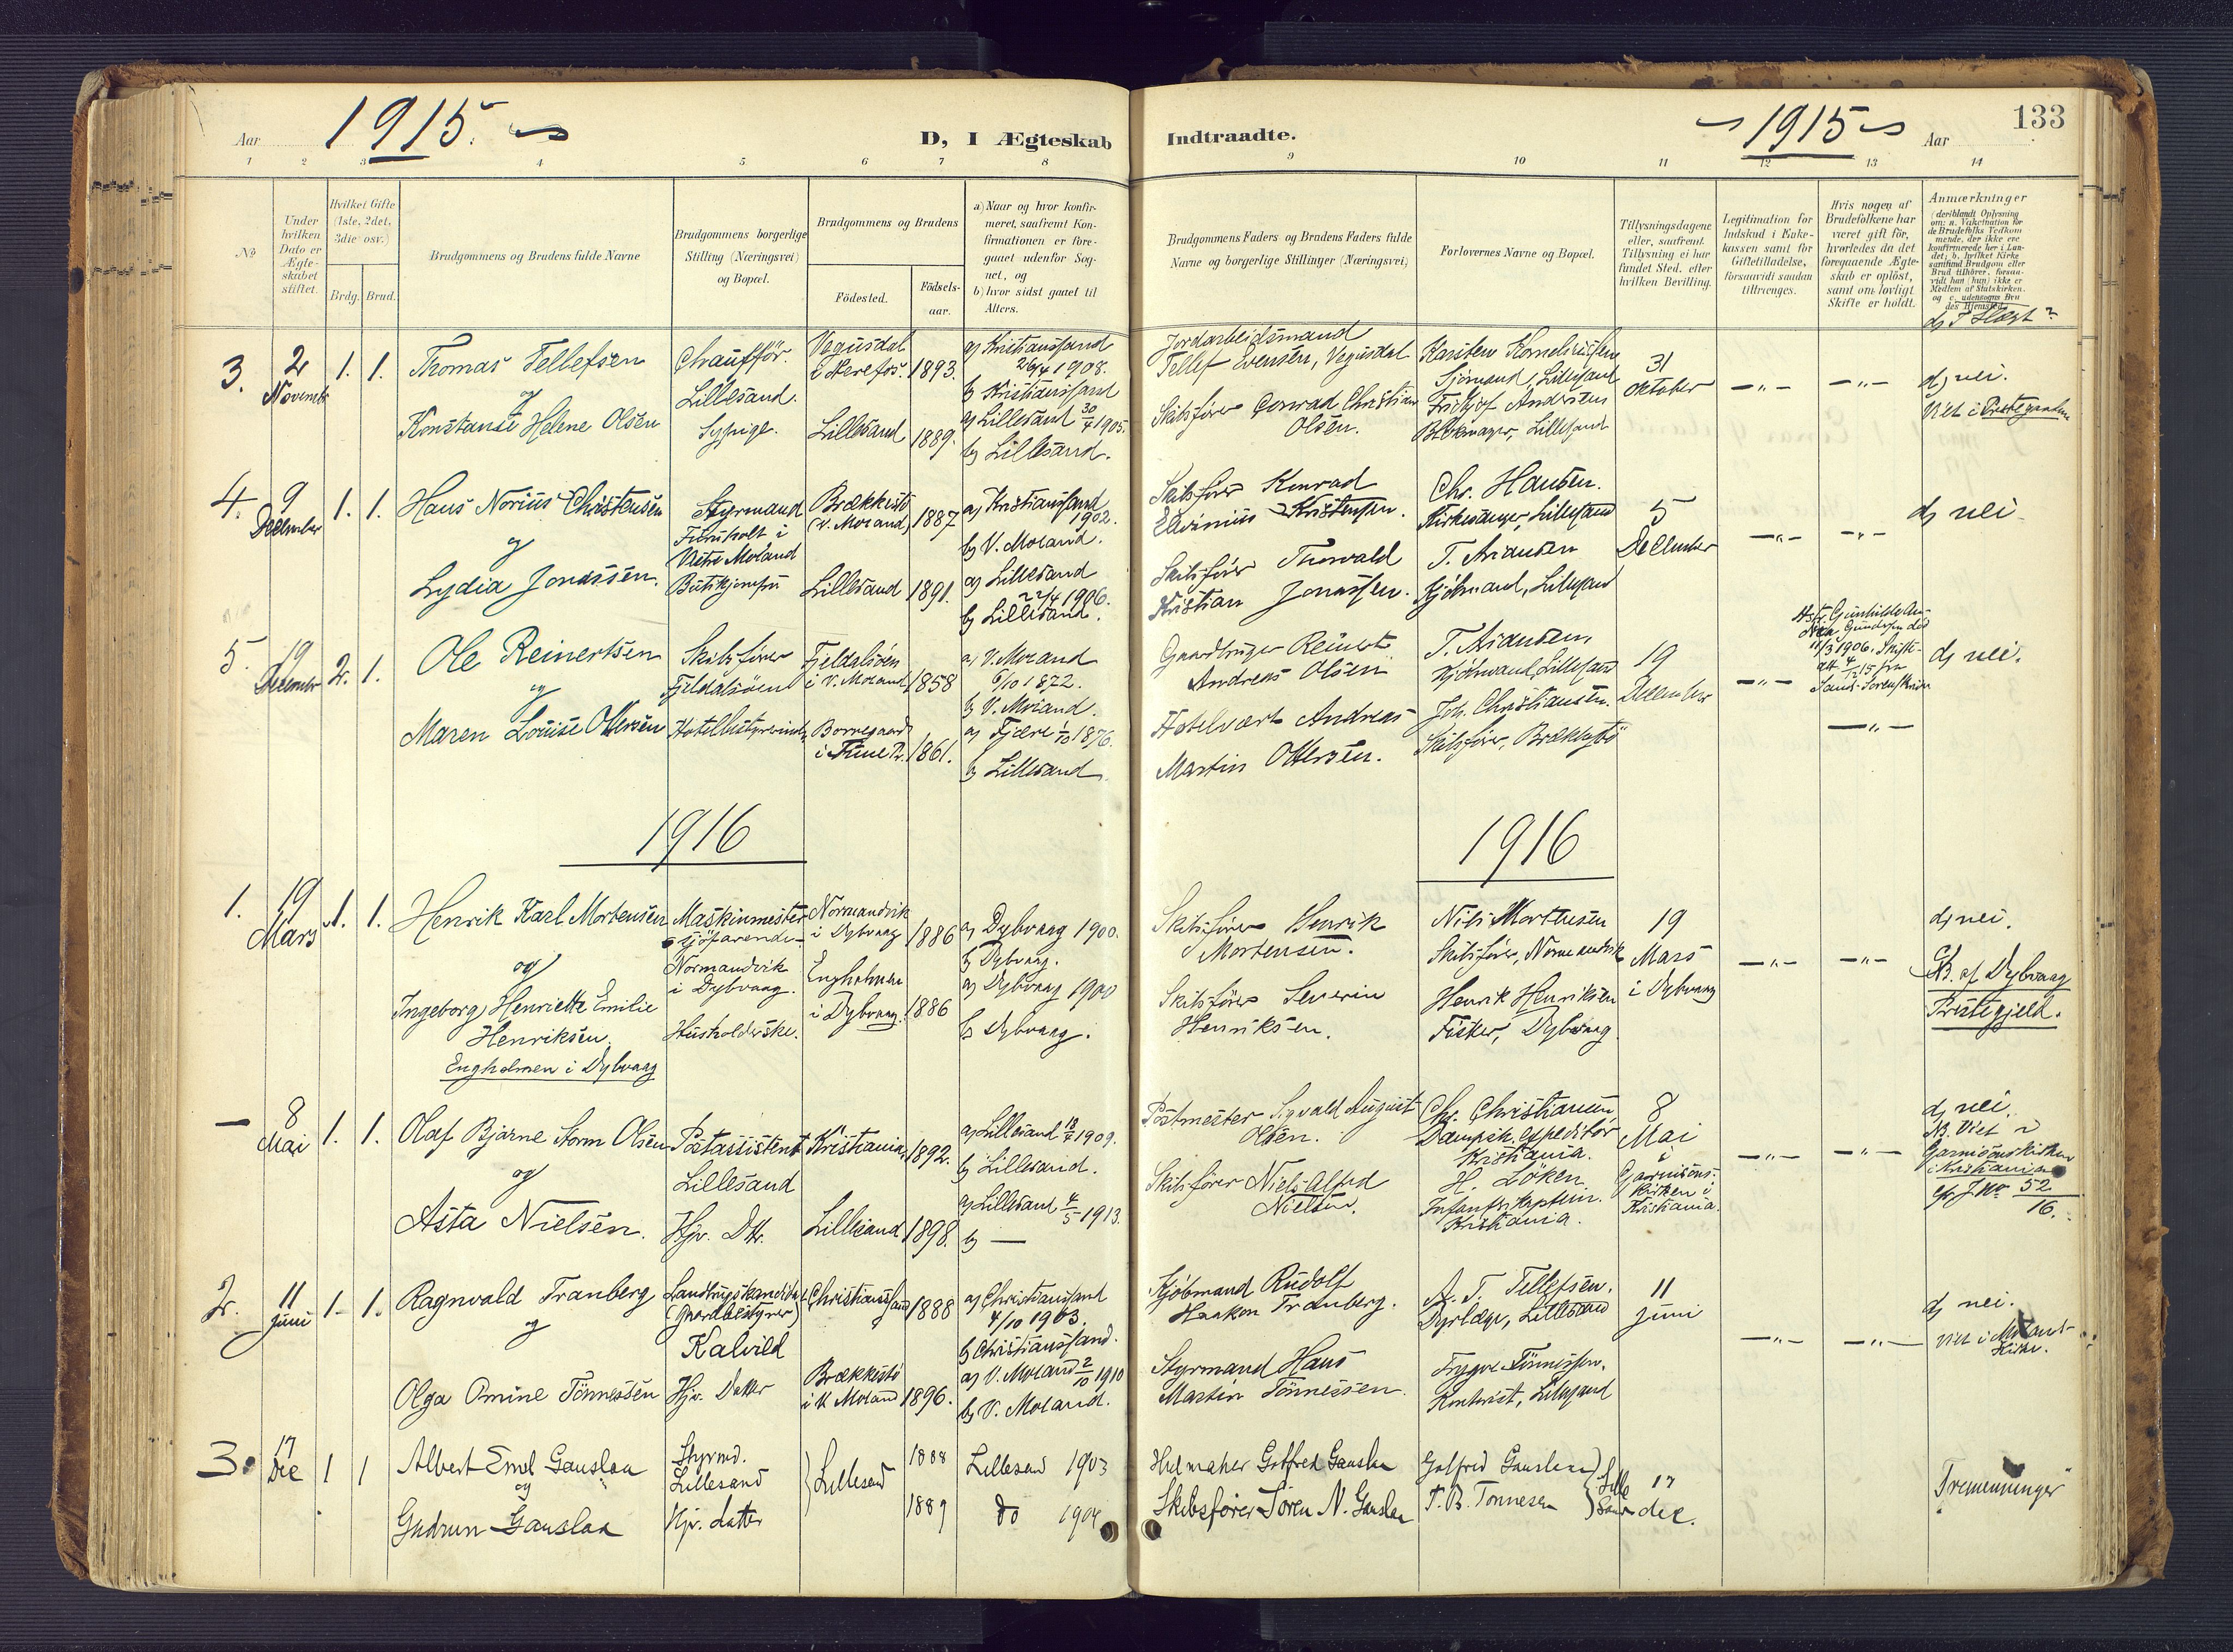 Aar 1915.
D, I Ægteskab
Indtraadte.
1915
Aar
133
1 2 3 4 5 6 7 8 9 10 11 12 13 14
No
Under
hvilken
Dato er
Ægte-
skabet
stiftet.
Hvilket Gifte
(1ste, 2det,
3die osv.)
Brdg. Brud.
Brudgommens og Brudens fulde Navne
Brudgommens borgerlige
Stilling (Næringsvei)
og Bopæl.
Brudgommens og Brudens
Födested.
Födsels-
aar.
a) Naar og hvor konfir-
meret, saafremt Kon-
firmationen er fore-
gaaet udenfor Sog-
net, og
b) hvor sidst gaaet til
Alters.
Brudgommens Faders og Brudens Faders fulde
Navne og borgerlige Stillinger (Næringsvei)
Forlovernes Navne og Bopæl.
Tillysningsdagene
eller, saafremt
Tillysning ei har
fundet Sted, efter
hvilken Bevilling.
Legitimation for
Indskud i Enke-
kassen samt for
Giftetilladelse,
forsaavidt saadan
tiltrænges.
Hvis nogen af
Brudefolkene har
været gift för,
hvorledes da det
foregaaende Ægte-
skab er oplöst,
samt om lovligt
Skifte er holdt.
Anmærkninger
(deriblandt Oplysning
om: a. Vakcination for
de Brudefolks Vedkom
mende, der ikke ere
konfirmerede her i Lan-
det; b. hvilket Kirke
samfund Brudgom eller
Brud tilhörer, forsaa-
vidt han (hun) ikke er
Medlem af Statskirken.
og c. udensogns Bru
des Hjemsted.
d) I Slægt?
3.
2
Novembr
1. 1.
Thomas Tellefsen
og
Konstanse Helene Olsen
Chaufför.
Lillesand.
Sypige.
Vegusdal
i Herefos.
Lillesand
1893.
1889.
a) Kristianssand
26/4 1908.
b) Kristianssand
a) Lillesand 30/4 1905.
b) Lillesand.
Jordarbeidsmand
Tellef Evensen, Vegusdal
Skibsfører Conrad Christian
Olsen.
Karsten Korneliussen
Sjömand, Lillesand
Fridtjof Andersen
Blokmager, Lillesand
31
Oktober
d) nei.
Viet i Prestegaarden
4.
9
December
1. 1.
Hans Norius Christensen
og
Lydia Jonassen.
Styrmand
Furuholt i
Vestre Moland
Butikjomfru
Brækkestö
(V. Moland)
Lillesand
1887
1891.
a) Kristianssand
1902.
b) V. Moland.
a) Lillesand
22/4 1906.
b) Lillesand.
Skibsfører Konrad
Elvinius Kristensen.
Skibsfører Thorvald
Kristian Jonassen.
Chr. Hansen.
Kirkesanger, Lillesand
T. Arianssen
Kjöbmand, Lillesand
5
December
d) nei
5.
19
December
2. 1.
Ole Reinertsen
og
Maren Louise Ottersen
Skibsfører
Fjeldalsöen
Hotelbestyrerinde
Fjeldalsöen
i V. Moland
1858
1861.
a) V. Moland
6/10 1872.
b) V. Moland.
a) Fjære 1/10 1876.
b) Lillesand
Gaardbruger Reinert
Andreas Olsen
Hotelvært Andreas
Martin Ottersen.
T. Arianssen,
Kjöbmand, Lillesand
Joh. Christiansen.
Skibsfører, Brækkestö
19
December
11/3 1906. Skifte-
att 4/12 15 fra
Sand Sorenskriver
d) nei.
1916
1916
1.
19
Mars
1. 1.
Henrik Karl Mortensen
og
Ingeborg Henriette Emilie
Henriksen
Engholmen i Dybvaag
Maskinmester
sjöfarende
Normandvik
i Dybvaag.
Husholderske.
Normandvik
i Dybvaag
Engholmen
i Dybvaag.
1886
1886
a) Dybvaag 1900.
b) Dybvaag.
a) Dybvaag 1900
b) Dybvaag.
Skibsfører Henrik
Mortensen.
Skibsfører Severin
Henriksen.
Nils Mortensen
Skibsfører, Normandvik
Henrik Henriksen
Fisker, Dybvaag
19
Mars
i Dybvaag
d) nei.
B. af Dybvaag
Prestegjeld.
—
8
Mai
1. 1.
Olaf Bjarne Storm Olsen
og
Asta Nielsen.
Postassistent
Lillesand
Hjv. Dtr.
Kristiania
Lillesand
1892.
1898.
a) Lillesand 18/4 1909.
b) Lillesand.
a) Lillesand 4/5 1913.
b) —
Postmester Sigvald August
Olsen.
Skibsfører Niels Alfred
Nielsen.
Chr. Christiansen,
Dampsk. expeditör
Kristiania.
H. Löken
Infanterikaptein.
Kristiania.
8
Mai
i
Garnisons-
kirken i
Kristiania.
d) nei.
NB. Viet i
Garnisonskirken
i Kristiania
cfr J No 52
16.
2.
11
Juni
1. 1.
Ragnvald Tranberg
og
Olga Omine Tönnessen
Landbrugskandidat
(Gaardbestyrer)
Kalvild
Hjv. Datter
Christianssand
Brækkestö
i V. Moland
1888
1896.
a) Christianssand
4/10 1903.
b) Christianssand.
a) V. Moland 2/10 1910
b) V. Moland.
Kjöbmand Rudolf
Haakon Tranberg.
Styrmand Hans
Martin Tönnessen.
A. T. Tellefsen.
Dyrlæge, Lillesand
Trygve Tönnessen.
Kontorist, Lillesand
11
Juni
d) nei.
Viet i Moland
Kirke.
3.
17
Dec
1 1
Albert Emil Gauslaa
og
Gudrun Gauslaa
Styrmd.
Lillesand
Hjv. datter
Lillesand
1888
1889
Lillesand 1903
do 1904
Gotfred Gauslaa
Skibsfører Søren N. Gauslaa
Gotfred Gauslaa
T. B. Tønnesen
Lille
sand
17
dec.
Tremenninger